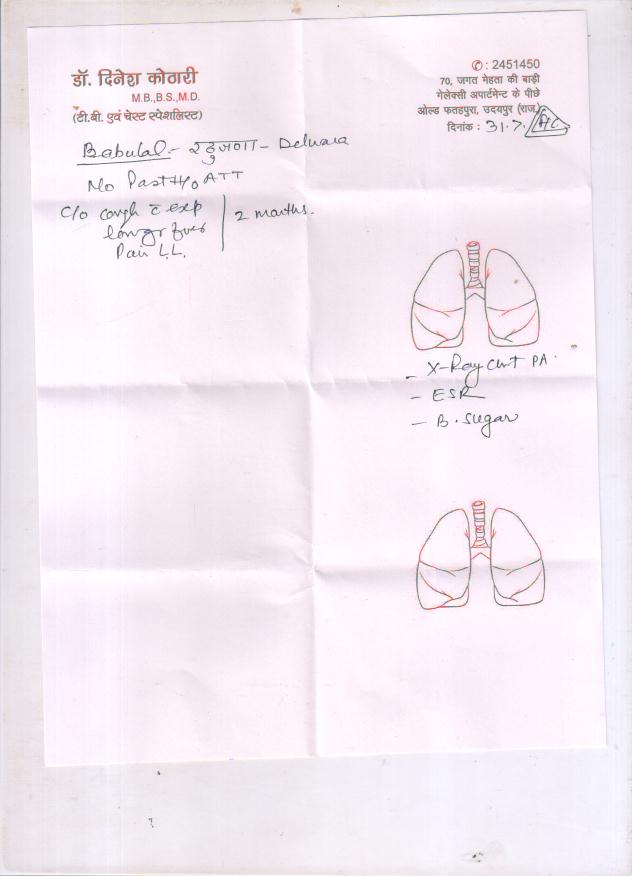 डॉ. दिनेश कोठारी
M.B.,B.S.,M.D.
(टी.बी. एवं चेस्ट स्पेशलिस्ट)
✆: 2451450
70, जगत मेहता की बाड़ी
गेलेक्सी अपार्टमेन्ट के पीछे
ओल्ड फतहपुरा, उदयपुर (राज.)
दिनांक : 31.7.
Babulal - Delwara
No Past H/O ATT
C/o cough c̄ exp
fever
Pain L.L.
2 months.
- X-Ray Chest PA.
- ESR
- B. Sugar